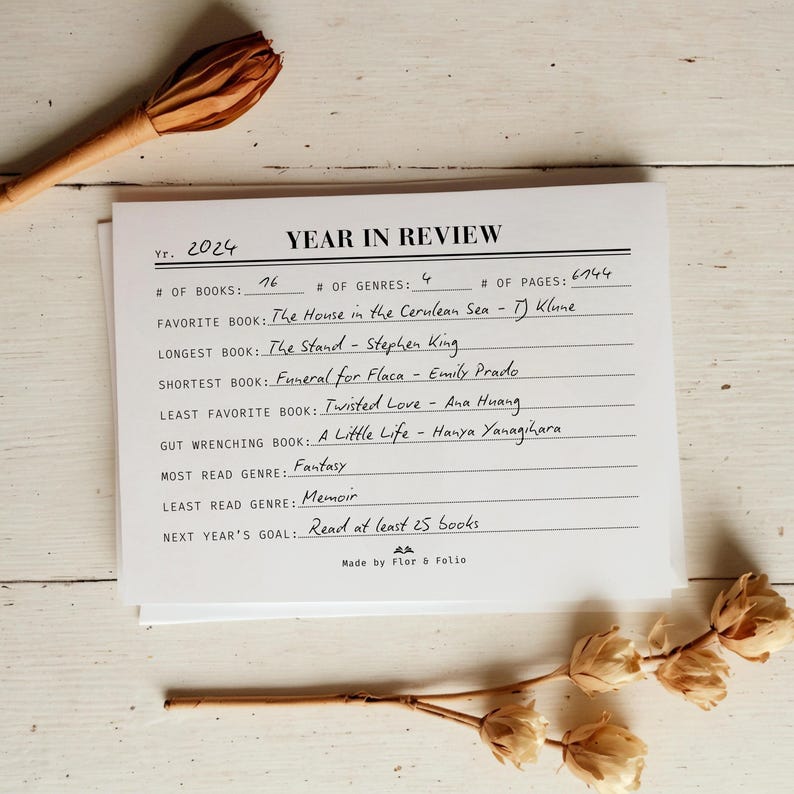 Yr. 2024 YEAR IN REVIEW
# OF BOOKS: 16 # OF GENRES: 4 # OF PAGES: 6144
FAVORITE BOOK: The House in the Cerulean Sea - TJ Klune
LONGEST BOOK: The Stand - Stephen King
SHORTEST BOOK: Funeral for Flaca - Emily Prado
LEAST FAVORITE BOOK: Twisted Love - Ana Huang
GUT WRENCHING BOOK: A Little Life - Hanya Yanagihara
MOST READ GENRE: Fantasy
LEAST READ GENRE: Memoir
NEXT YEAR'S GOAL: Read at least 25 books
Made by Flor & Folio